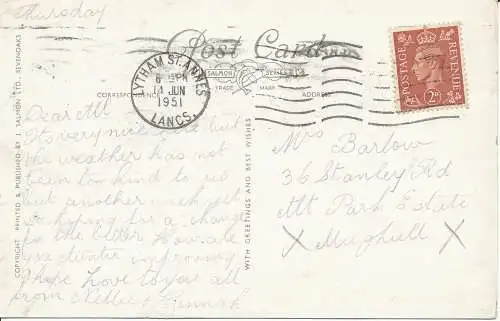 Thursday
Post Card
SALMON SERIES
TRADE MARK
CORRESPONDENCE
ADDRESS
LYTHAM ST. ANNES
6 PM
14 JUN
1951
LANCS.
POSTAGE
REVENUE
2D
Dear All
Its very nice here but
the weather has not
been too kind to us
but another week yet
so hoping for a change
to the better How are
you all improving
I hope love to you all
from Nellie
Mrs Barlow
36 Stanley Rd
Mt Park Estate
X Mughull X
WITH GREETINGS AND BEST WISHES
COPYRIGHT PRINTED & PUBLISHED BY J. SALMON LTD., SEVENOAKS